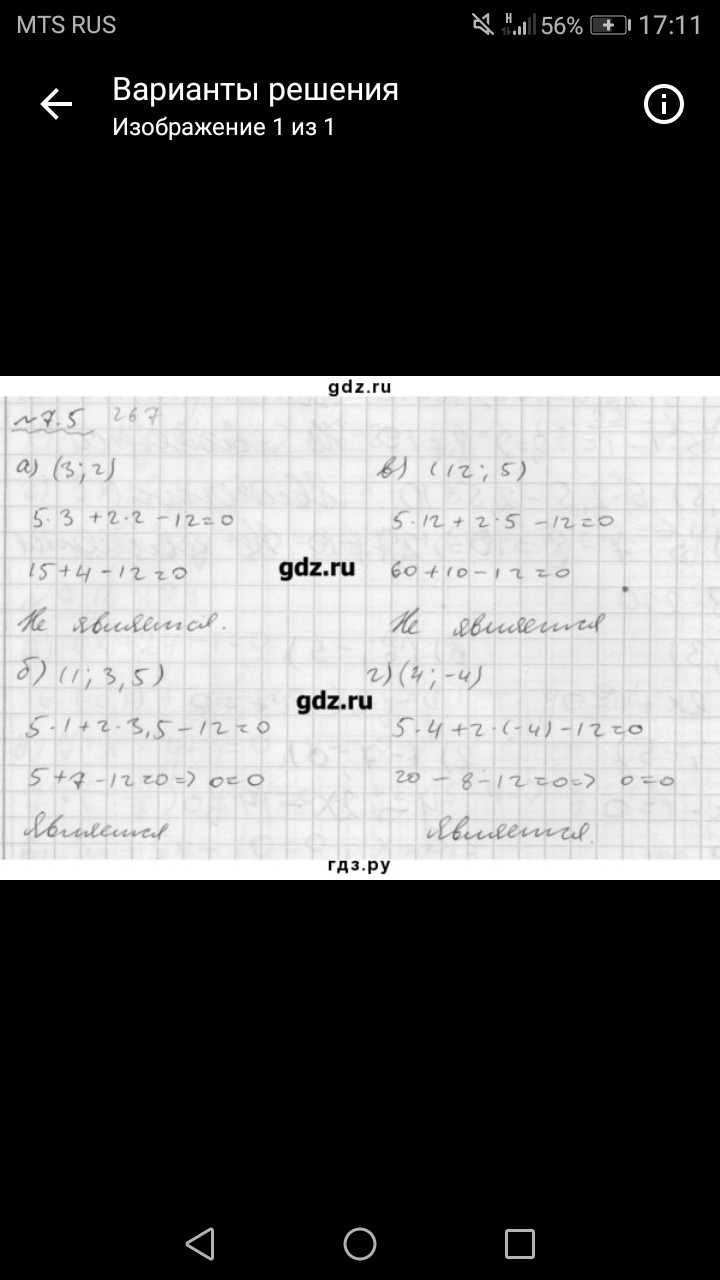 MTS RUS
H
56%
17:11
Варианты решения
Изображение 1 из 1
gdz.ru
№7.5 267
а) (3; 2)
5·3 + 2·2 - 12 = 0
15 + 4 - 12 = 0
Не является.
б) (1; 3,5)
5·1 + 2·3,5 - 12 = 0
5 + 7 - 12 = 0 => 0 = 0
Является
в) (12; 5)
5·12 + 2·5 - 12 = 0
60 + 10 - 12 = 0
Не является
г) (4; -4)
5·4 + 2·(-4) - 12 = 0
20 - 8 - 12 = 0 => 0 = 0
Является.
gdz.ru
gdz.ru
гдз.ру